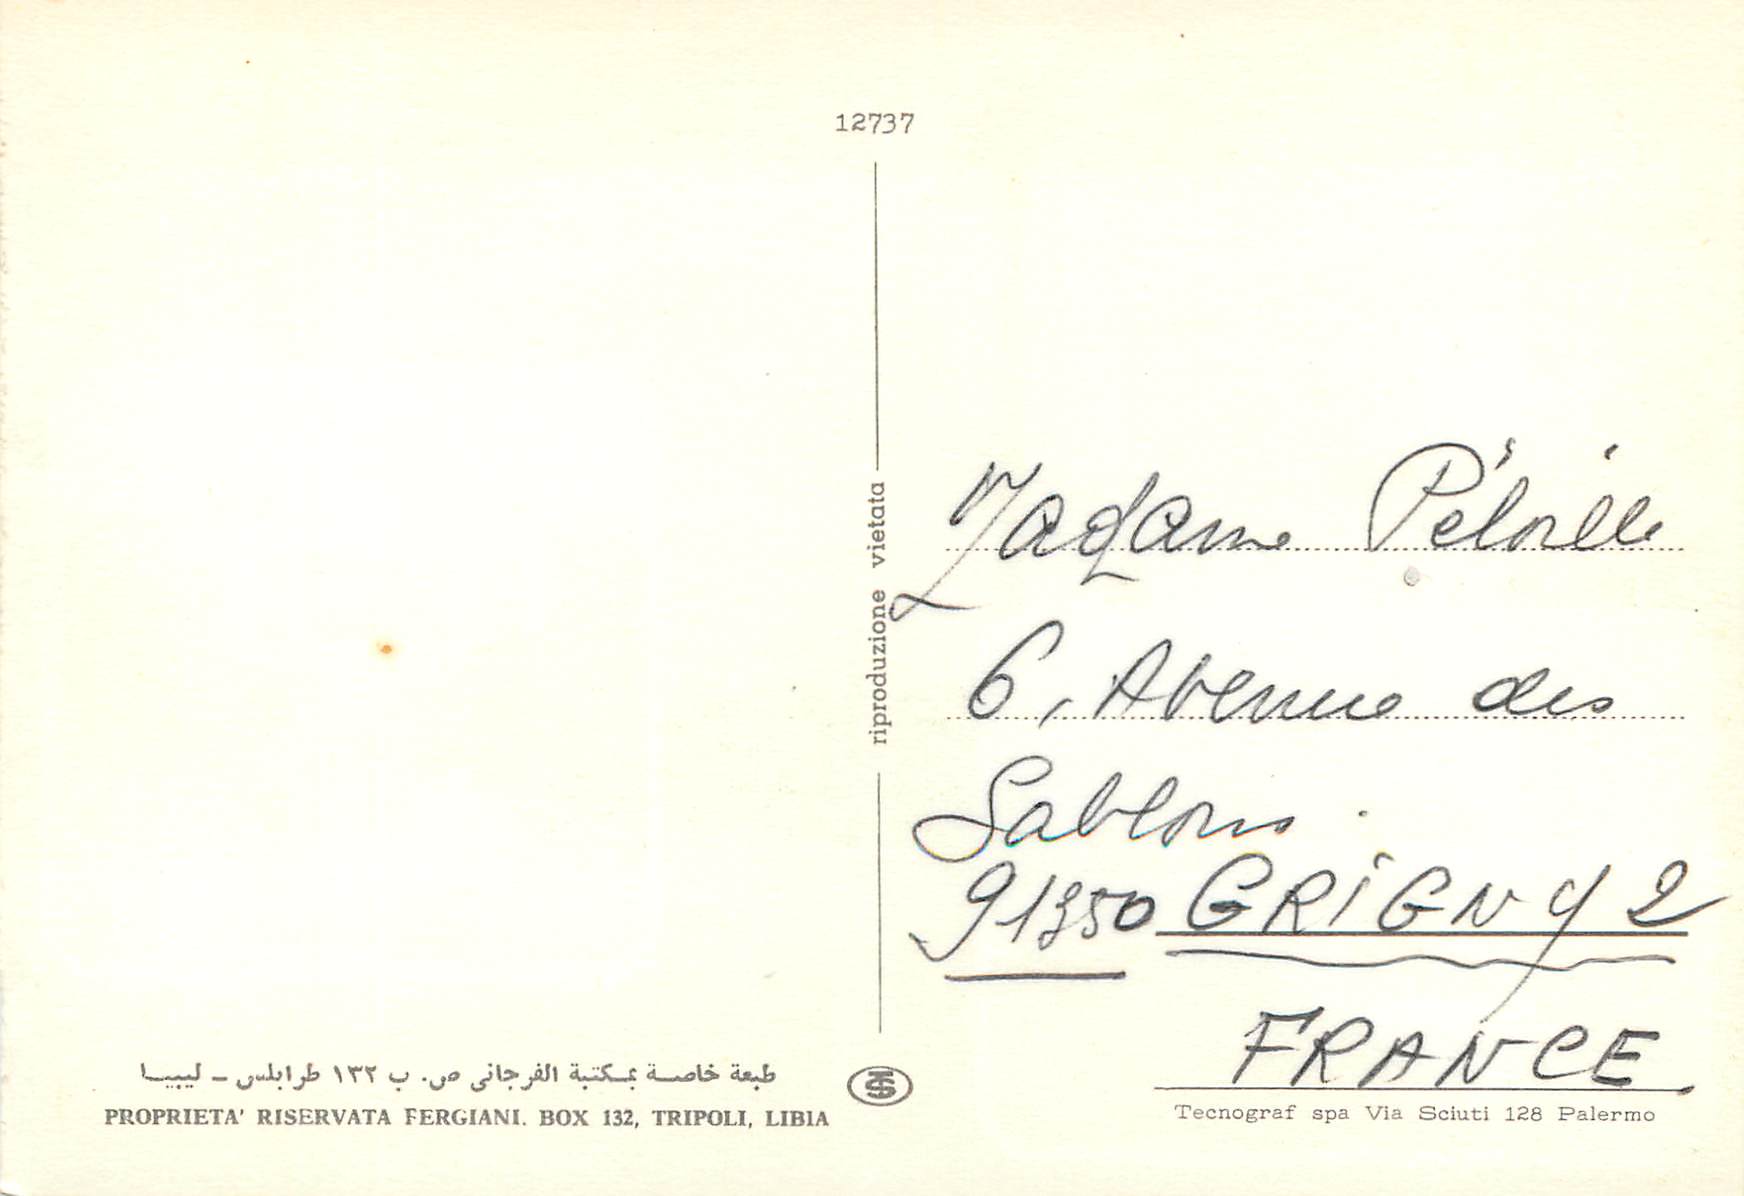 12737
riproduzione vietata
Madame
6, Avenue des
Sablons.
91350 GRIGNY 2
FRANCE
طبعة خاصة بمكتبة الفرجانى ص. ب ١٣٢ طرابلس - ليبيا
PROPRIETA' RISERVATA FERGIANI. BOX 132, TRIPOLI, LIBIA
Tecnograf spa Via Sciuti 128 Palermo